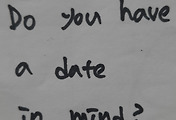 Do you have
a date
in mind?